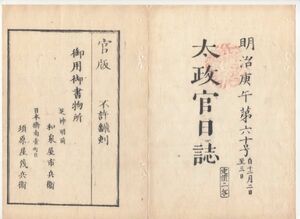 明治庚午第六十号
自十二月二日
至三日
太政官日誌
官版
不許翻刻
御用御書物所
芝神明前
和泉屋市兵衛
日本橋南壱町目
須原屋茂兵衛